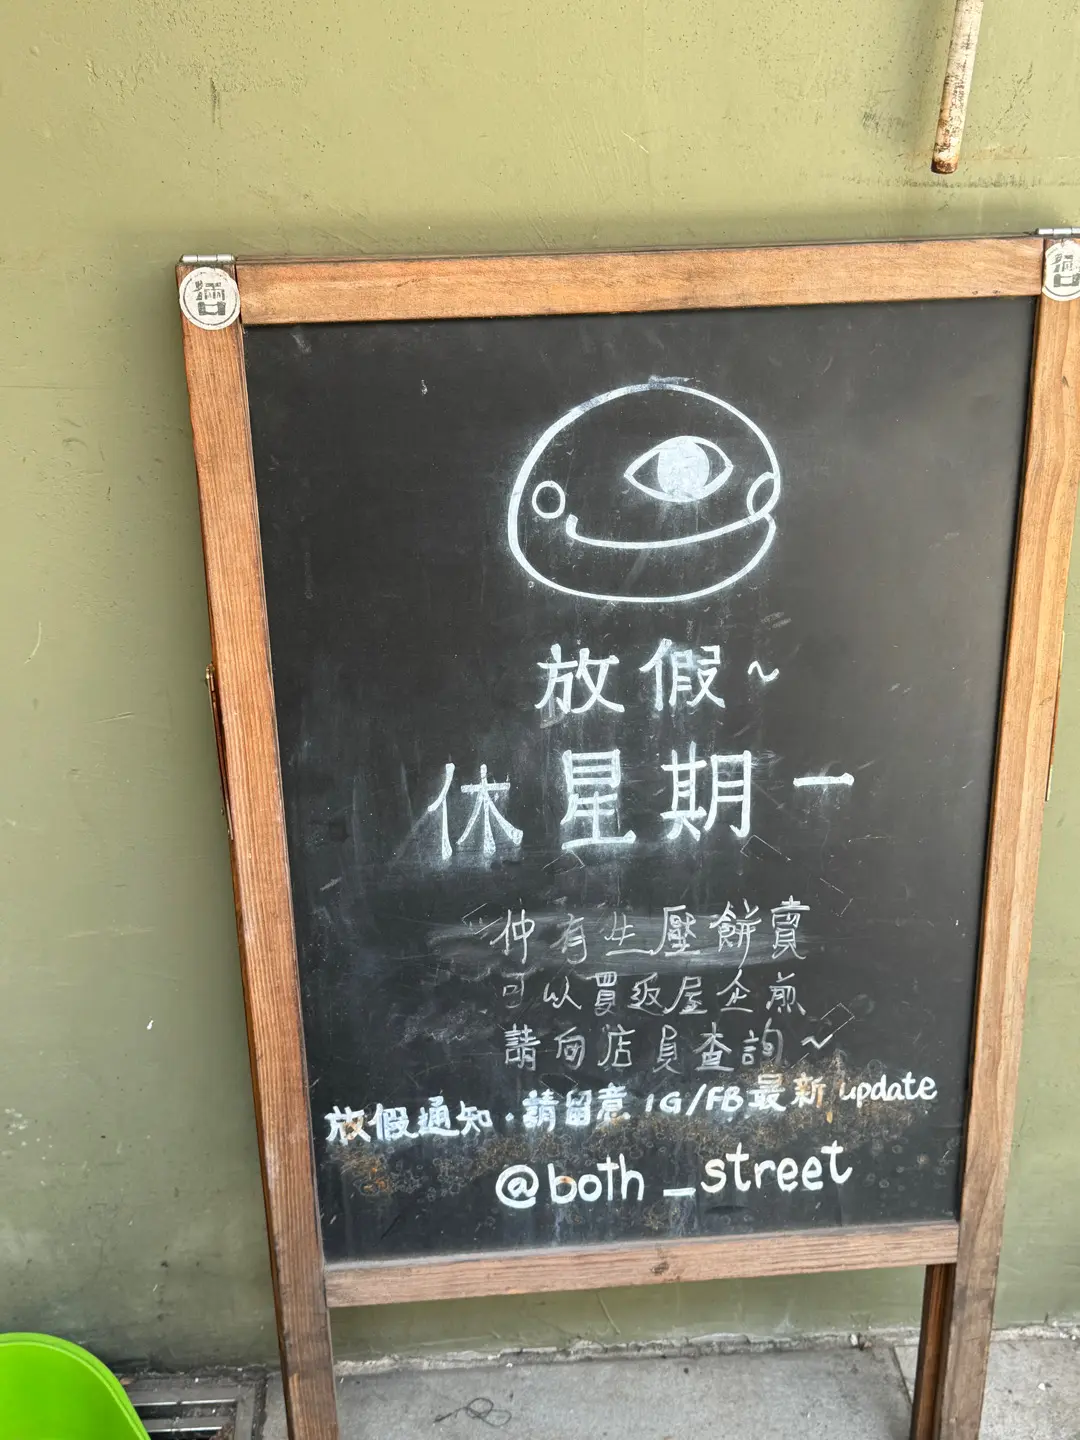 放假~
休星期一
仲有生壓餅賣
可以買返屋企煎
請向店員查詢~
放假通知，請留意 IG/FB最新 update
@both_street